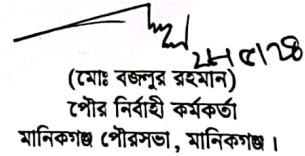 ২৮/৫/২৪
(মোঃ বজলুর রহমান)
পৌর নির্বাহী কর্মকর্তা
মানিকগঞ্জ পৌরসভা, মানিকগঞ্জ।